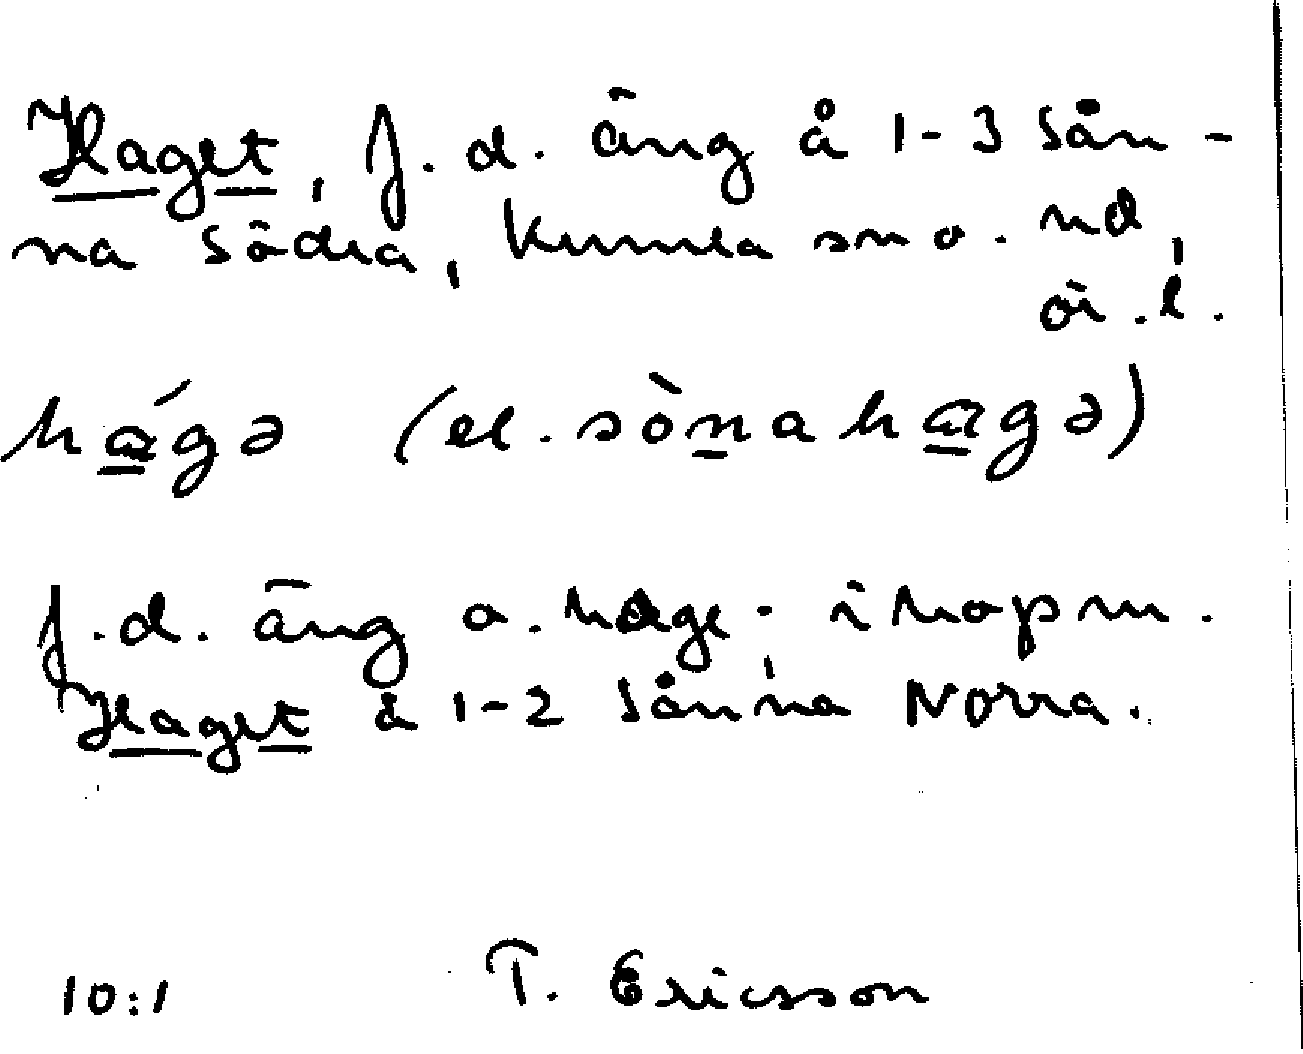 Haget, f.d. äng å 1-3 Sån-
na Södra, Kumla sn o. hd,
Ör.l.
hágə (el. sònahagə)
f.d. äng o. hage; ihopm.
Haget å 1-2 Sånna Norra.
10:1 T. Ericsson